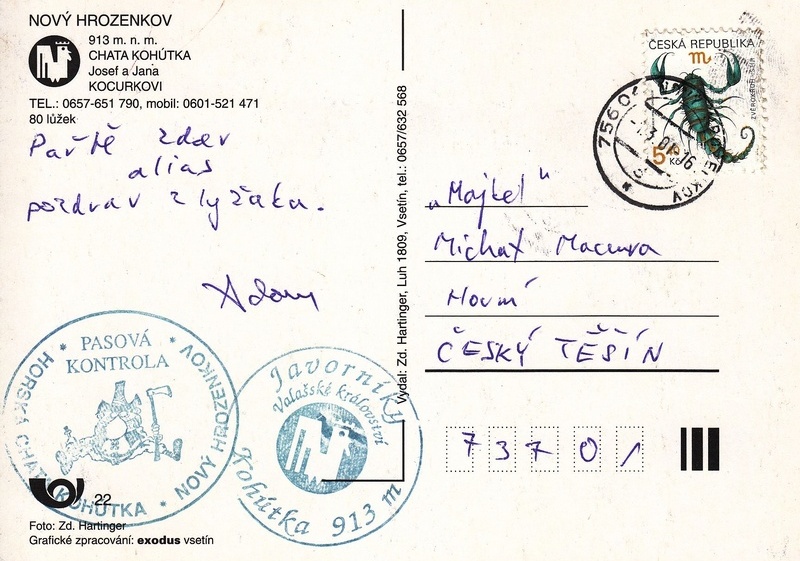 NOVÝ HROZENKOV
913 m. n. m.
CHATA KOHÚTKA
Josef a Jana
KOCURKOVI
TEL.: 0657-651 790, mobil: 0601-521 471
80 lůžek
zdar
alias
pozdrav z lyžáku.
Adam
PASOVÁ
KONTROLA
HORSKÁ CHATA KOHÚTKA • NOVÝ HROZENKOV
Javorníky
Valašské království
Kohútka 913 m
22
Foto: Zd. Hartinger
Grafické zpracování: exodus vsetín
Vydal: Zd. Hartinger, Luh 1809, Vsetín, tel.: 0657/632 568
ČESKÁ REPUBLIKA
5 Kč
756 04
„Majkel“
Michal Macura
Horní
ČESKÝ TĚŠÍN
737 01